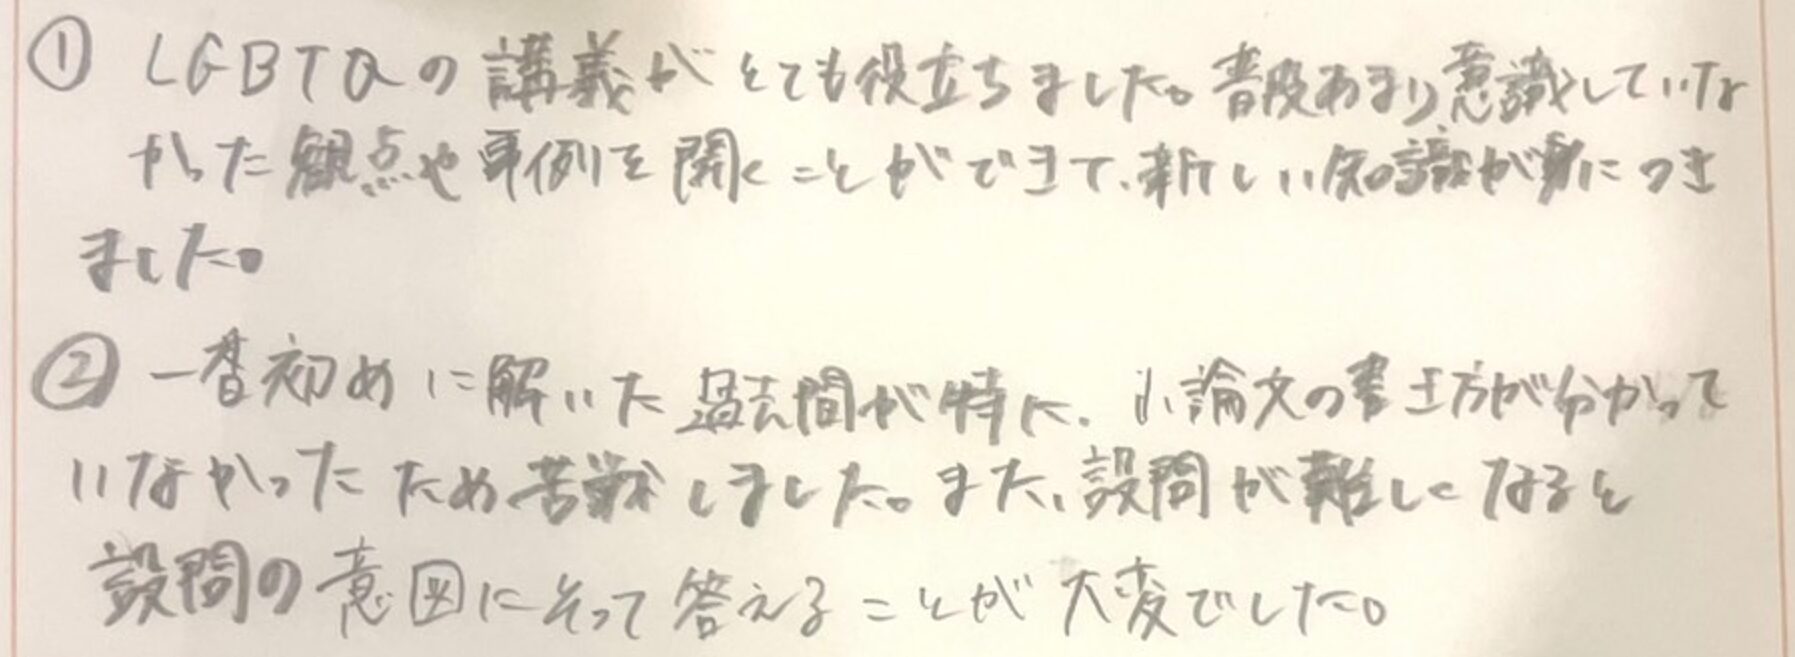 ① LGBTQの講義がとても役立ちました。普段あまり意識していな
かった観点や事例を聞くことができて、新しい知識が身につき
ました。
② 一番初めに解いた過去問が特に、小論文の書き方が分かって
いなかったため苦戦しました。また、設問が難しくなると
設問の意図にそって答えることが大変でした。